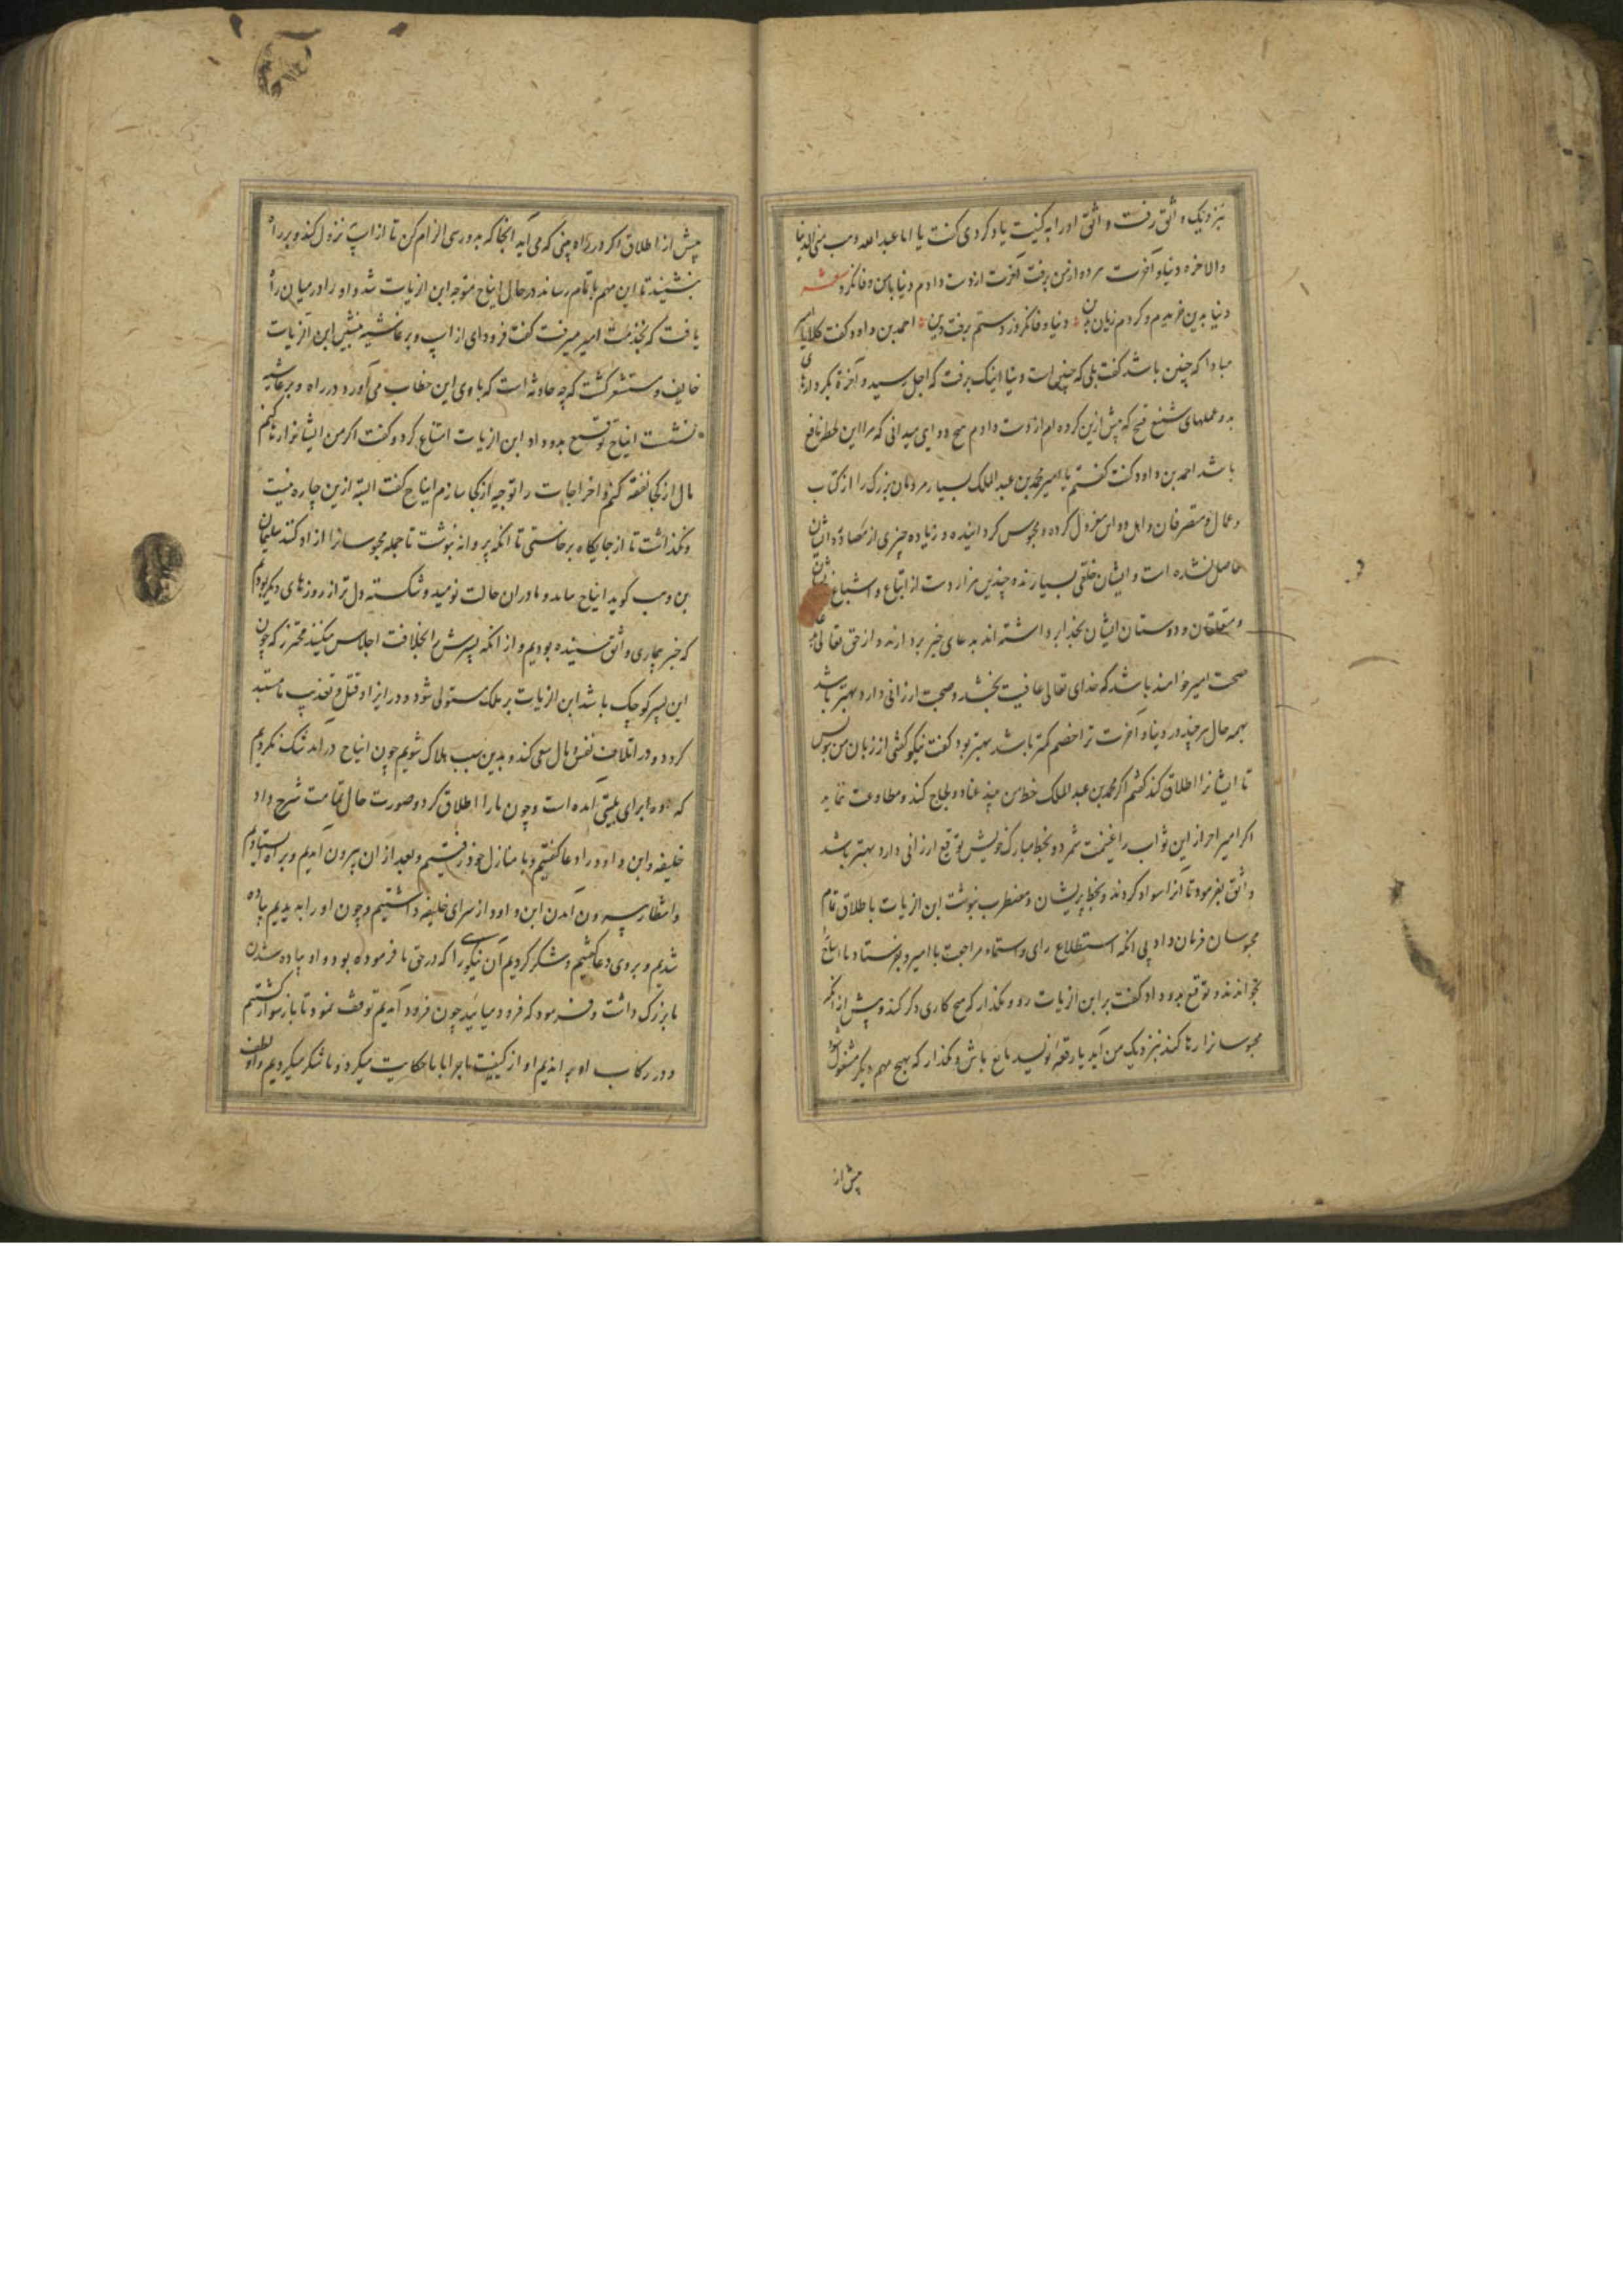 بنزدیک واثق رفت و اثق اورا به کنیت یاد کردی گفت یا ابا عبد الله ذهب منی الدنیا
والاخره دنیا و آخرت هر دو از من برفت آخرت از دست دادم دنیا با من وفا نکرد شعر
دنیا بدین خریدم و کردم زیان بدین دنیا وفا نکرد و ز دستم برفت دین احمد بن داود گفت کلا یا امیر
مبادا که چنین باشد گفت بلی که چنین است دنیا اینک برفت که اجل رسید و آخرة بکردارهای
بد و عملهای شنیع قبیح که پیش ازین کرده ام از دست دادم هیچ دوای میدانی که مرا این لحظه نافع
باشد احمد بن داود گفت گفتم یا امیر محمد بن عبد الملک بسیار مردمان بزرگ را از کتاب
و عمال و متصرفان و اهل دواوین معزول کرده و محبوس گردانیده و زیاده چیزی از مصادره ایشان
حاصل نشده است و ایشان خلقی بسیارند و چندین هزار دست از اتباع و اشیاع ایشان
و متعلقان و دوستان ایشان بخدا برداشته اند بدعای خیر بردارند و از حق تعالی
صحت امیر خواهند باشد که خدای تعالی عافیت بخشد و صحت ارزانی دارد و بهتر باشد
بهمه حال هر چند در دنیا و آخرت ترا خصم کمتر باشد بهتر بود گفت نیکو گفتی از زبان من بنویس
تا ایشانرا اطلاق کند گفتم اگر محمد بن عبد الملک خط من بیند عناد و لجاج کند و مطاوعت ننماید
اگر امیر احراز این ثواب را غنیمت شمرد و بخط مبارک خویش توقیع ارزانی دارد بهتر باشد
واثق بفرمود تا آنرا سواد کردند و بخط پریشان و مضطرب بنوشت ابن الزیات باطلاق تمام
محبوسان فرمان داد بی انکه استطلاع رای و استماد مراجعت با امیر و بفرستاد با ایتاخ
بخواندند و توقیع بدو داد گفت بر ابن الزیات رو و مگذار که هیچ کاری دگر کند و پیش از انکه
محبوسانرا رها کند بنزدیک من آید یا رقعه نویسد مانع باش و مگذار که بهیچ مهم دیگر مشغول شود
پیش از
پیش از اطلاق و اگر در راه بینی که می آید آنجا که بدو رسی الزام کن تا از اسپ نزول کند و بر راه
بنشیند تا این مهم باتمام رساند در حال ایتاخ متوجه ابن الزیات شد و او را در میان راه
یافت که بخدمت امیر میرفت گفت فرود ای از اسپ و بر غاشیه بنشین ابن الزیات
خایف و مستشعر گشت که چه حادثه است که با وی این خطاب می آورد در راه و بر غاشیه
نشست ایتاخ توقیع بدو داد ابن الزیات امتناع کرد و گفت اگر من ایشانرا رها کنم
مال از کجا نفقه کنم و اخراجات را توجیه از کجا سازم ایتاخ گفت البته ازین چاره نیست
و نگذاشت تا از جایگاه برخاستی تا انکه پروانه نبوشت تا جمله محبوسانرا ازاد کنند سلیمان
بن وهب گوید ایتاخ بیامد و ما دران حالت نومید و شکسته دل تر از روزهای دیگر بودیم
که خبر بیماری واثق شنیده بودیم و از انکه پسرش را بخلافت اجلاس میکنند محترز که چون
این پسر کوچک باشد ابن الزیات بر ملک مستولی شود و در ایذا و قتل و تعذیب ما مستبد
گردد و در اتلاف نفس و مال سعی کند و بدین سبب هلاک شویم چون ایتاخ درامد شک نکردیم
که او برای بلیتی آمده است و چون ما را اطلاق کرد و صورت حال بتمامت شرح داد
خلیفه و ابن داود را دعا گفتیم و با منازل خود رفتیم و بعد از ان بیرون آمدیم و بر راه بایستادیم
و انتظار بیرون آمدن ابن داود از سرای خلیفه داشتیم و چون او را بدیدیم پیاده
شدیم و بر وی دعا گفتیم و شکر کردیم آن نیکوی را که در حق ما فرموده بود و او پیاده شدن
ما بزرگ داشت و فرمود که فرود میایید چون فرود آمدیم توقف نمود تا باز سوار گشتیم
و در رکاب او براندیم او از کیفیت ماجرا با ما حکایت میکرد و ما شکر میکردیم و او لطف